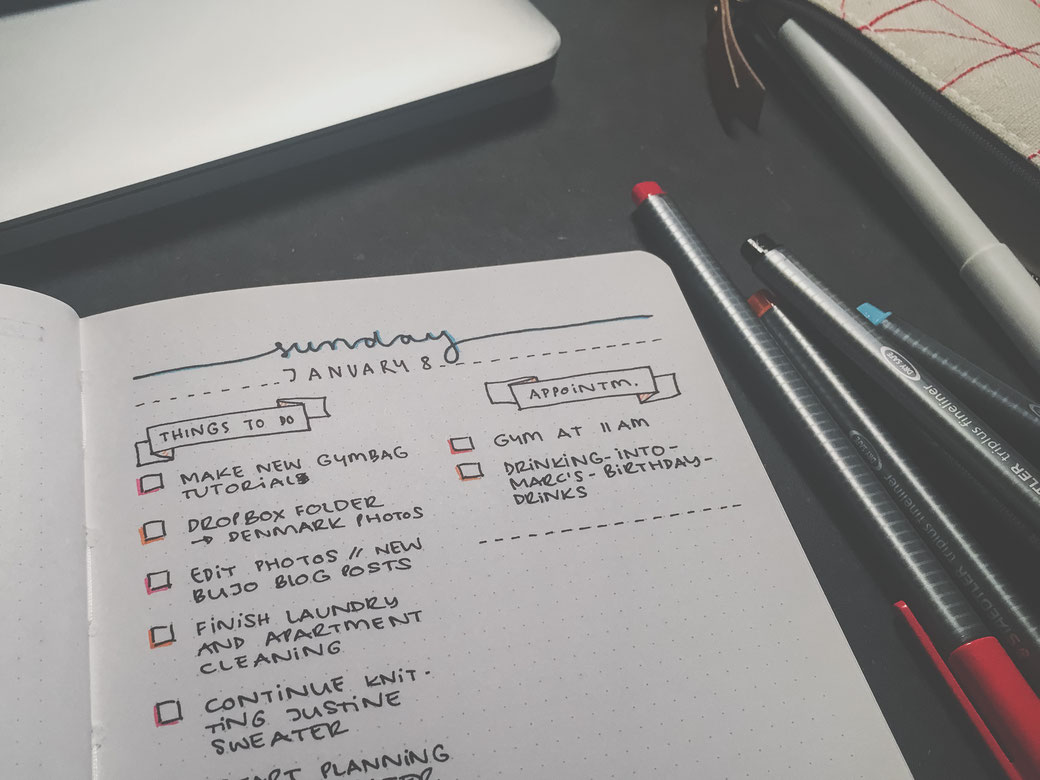 sunday
JANUARY 8
THINGS TO DO
MAKE NEW GYMBAG
TUTORIALS
DROPBOX FOLDER
→ DENMARK PHOTOS
EDIT PHOTOS // NEW
BUJO BLOG POSTS
FINISH LAUNDRY
AND APARTMENT
CLEANING
CONTINUE KNIT-
TING JUSTINE
SWEATER
START PLANNING
APPOINTM.
GYM AT 11 AM
DRINKING-INTO-
MARC'S-BIRTHDAY-
DRINKS
DRY SAFE
triplus fineliner
STAEDTLER triplus fineliner